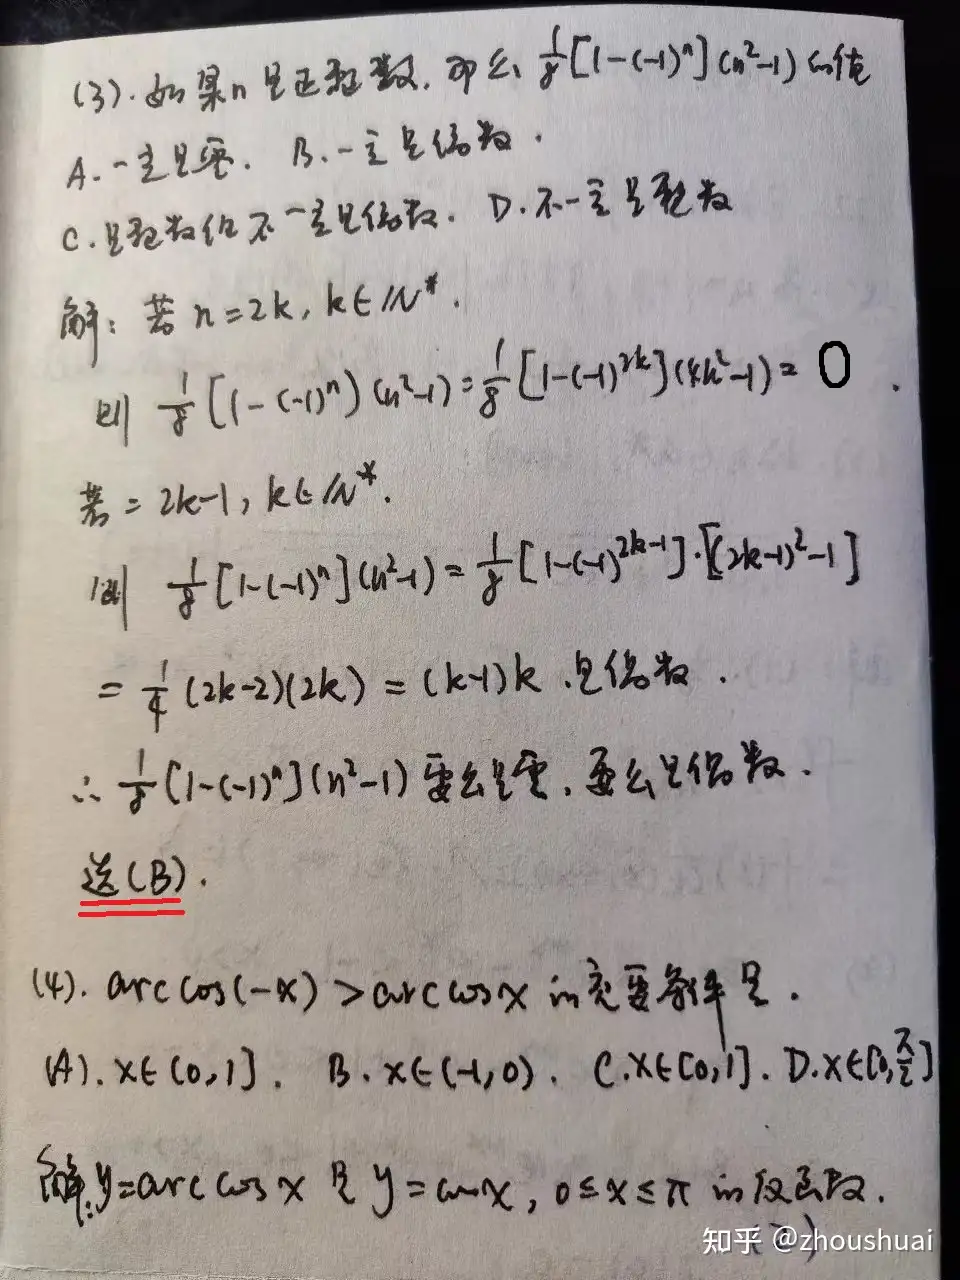 (3).如果n是正整数,那么 1/8[1-(-1)^n](n²-1)的值
A.一定是零. B.一定是偶数.
C.是整数但不一定是偶数. D.不一定是整数
解:若n=2k,k∈N*.
则 1/8[1-(-1)^n)(n²-1)=1/8[1-(-1)^2k](4k²-1)=0.
若=2k-1,k∈N*.
则 1/8[1-(-1)^n](n²-1)=1/8[1-(-1)^2k-1]·[(2k-1)²-1]
=1/4(2k-2)(2k)=(k-1)k.是偶数.
∴1/8[1-(-1)^n](n²-1)要么是零,要么是偶数.
选(B).
(4).arccos(-x)>arccosx的充要条件是.
(A).x∈(0,1]. B.x∈(-1,0). C.x∈[0,1]. D.x∈[0,π/2]
解:y=arccosx是y=cosx,0≤x≤π的反函数.
(2)
知乎 @zhoushuai